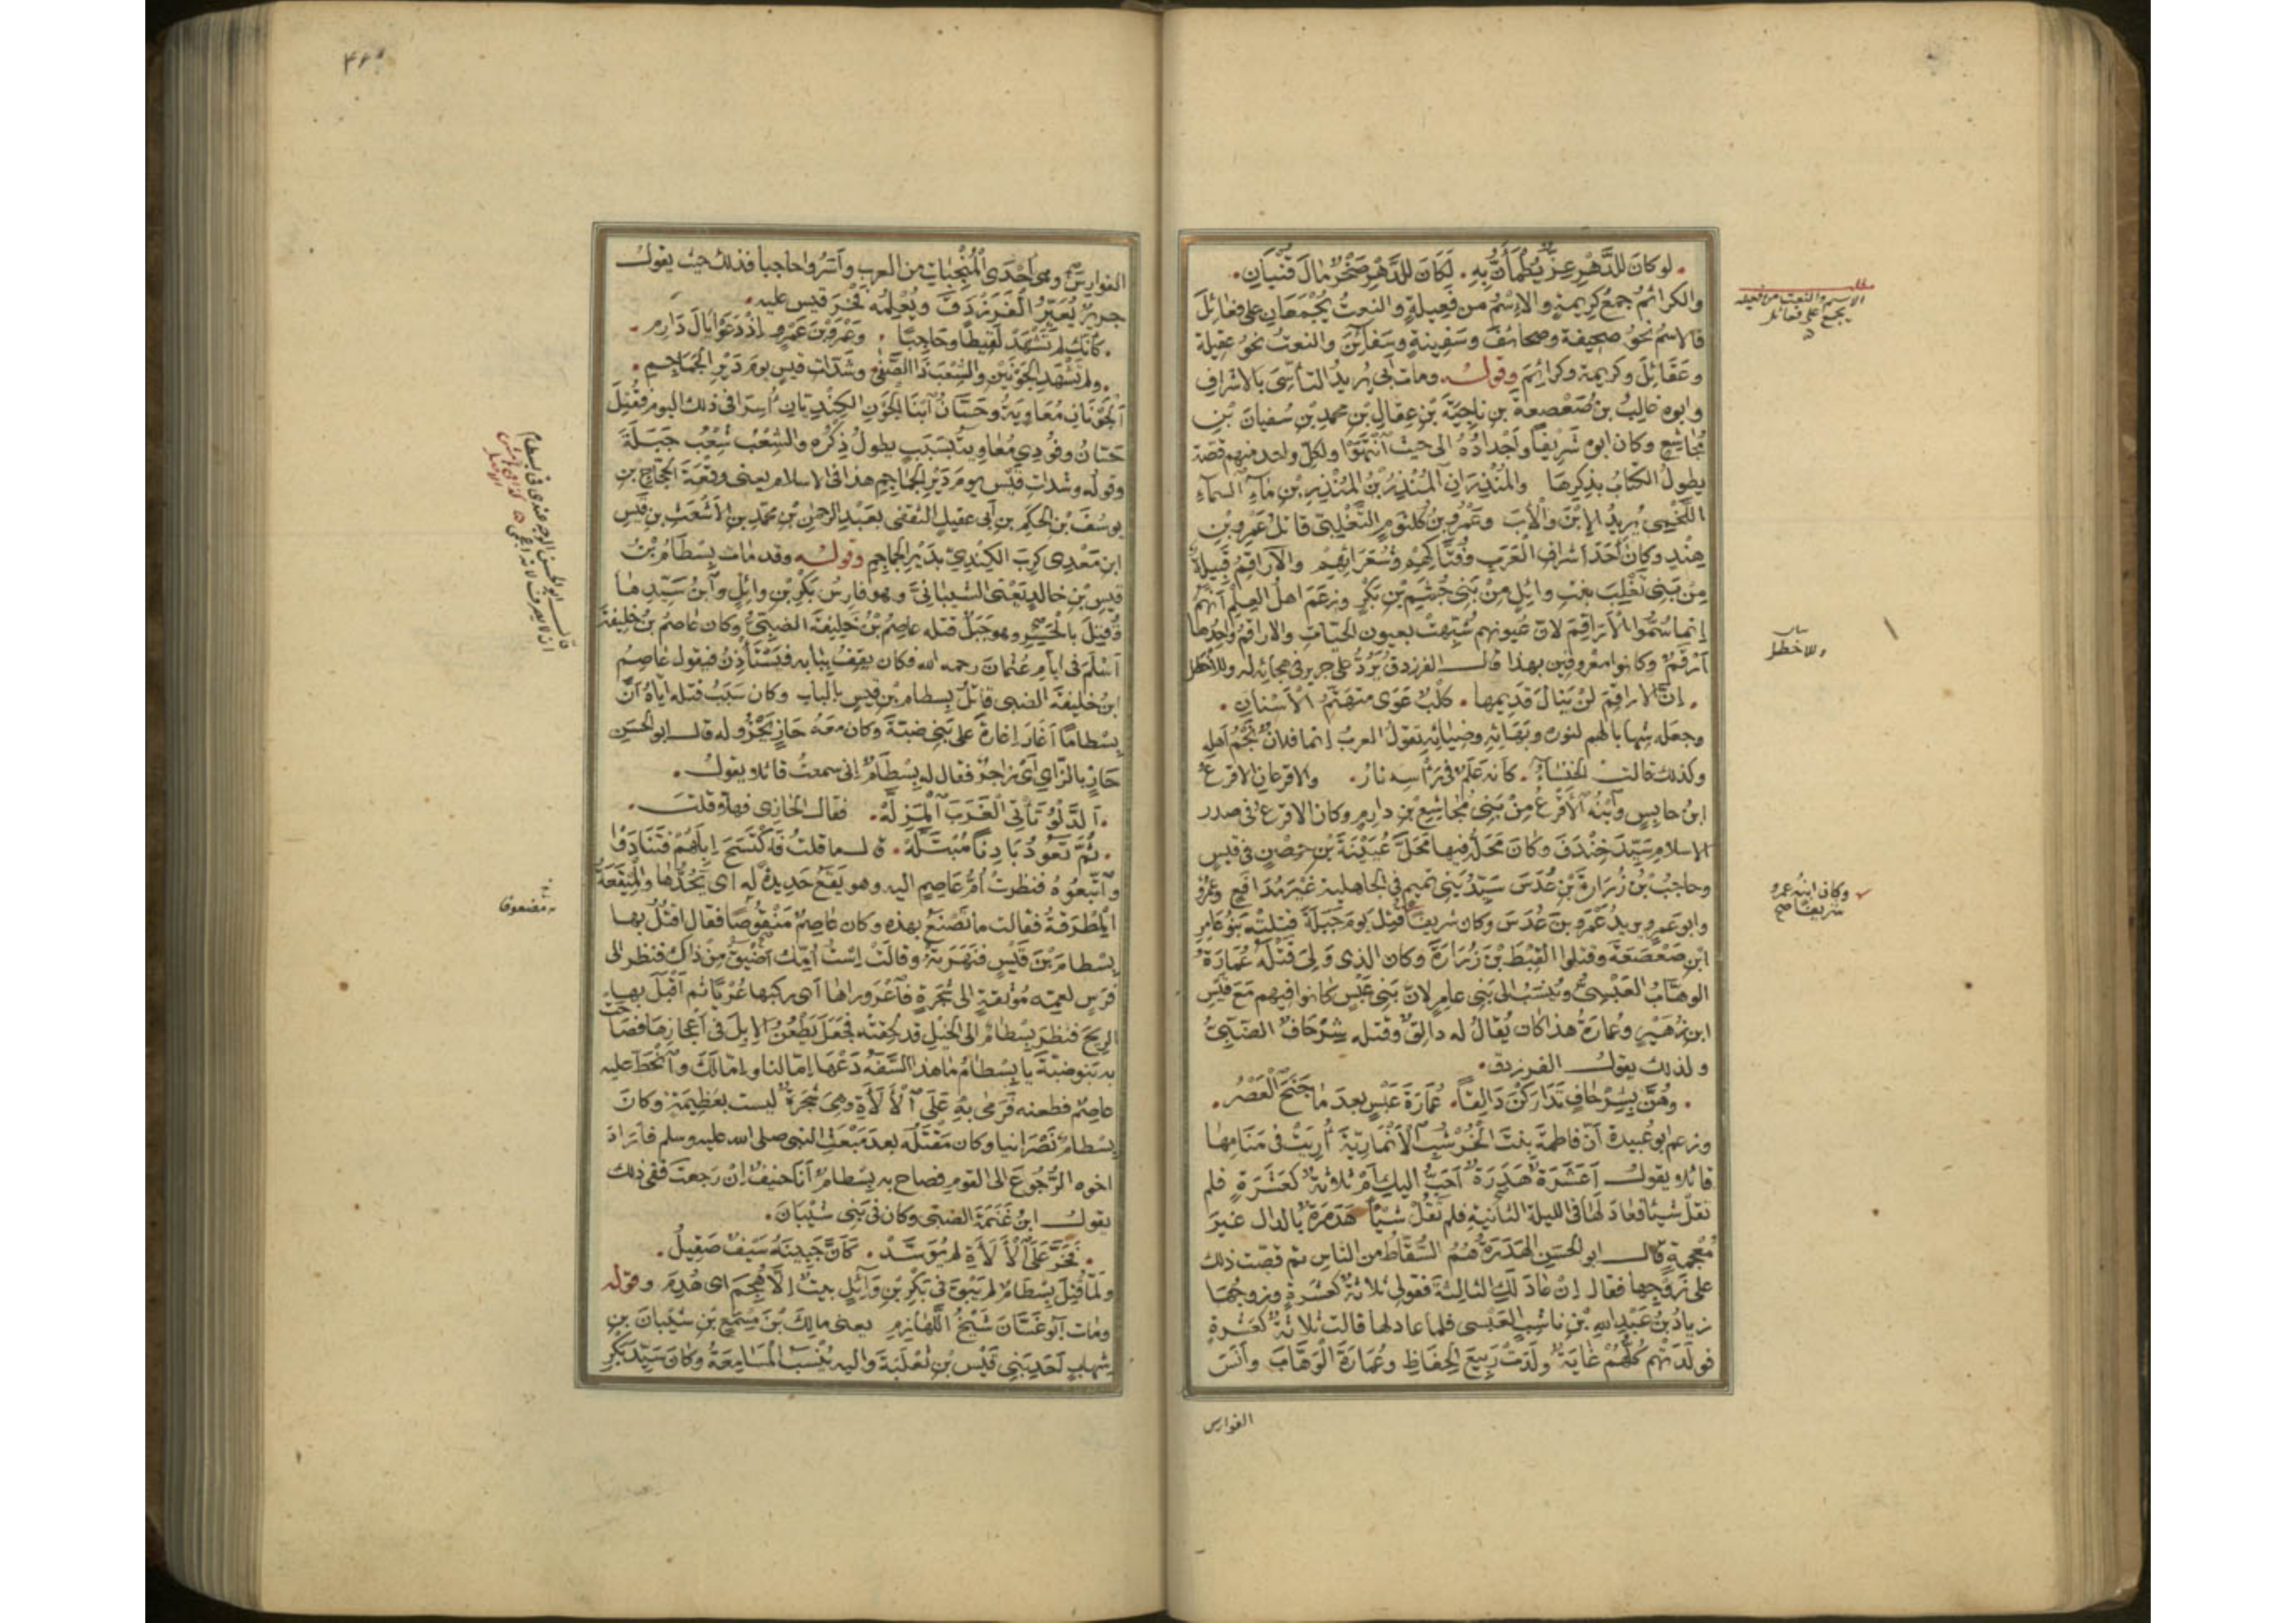 لو كان للدَّهْرِ عِزٌّ يُطْمَأَنُّ بِهِ . لَكَانَ للدَّهْرِ صَخْرٌ مَالَ قُنْيَانِ
والكرائمُ جمعُ كريمةٍ والاِسْمُ من فَعِيلةٍ والنعتُ يُجْمَعَانِ على فعَائِلَ
فالاسمُ نحوُ صحيفة وصحائفَ وسَفِينةٍ وسَفَآئِنَ والنعتُ نحوُ عقيلة
وعَقَائلَ وكريمة وكرائِمَ وقولـه ومات أبي يُريدُ التأسّيَ بالاشرافِ
وابوه غالبُ بن صَعْصعةَ بنِ ناجيَةَ بْنِ عِقالِ بنِ محمدِ بنِ سُفيانَ بْنِ
مُجَاشِعٍ وكان ابوه شَرِيفًا وأجْدادُهُ الى حيث انْتَهَوْا ولكلِّ واحد منهم قصّة
يطولُ الكتابُ بذكرِهَا والمُنْذِرَانِ المُنْذِرُ بْنُ المُنْذِرِ بْنِ مَآءِ السماءِ
اللَّخْمِىِّ يُريدُ الاِبْنَ والأبَ وعَمْرُو بنُ كُلثومٍ التَّغْلِبيّ قاتلُ عَمْرِو بْنِ
هِنْدٍ وكانَ أحَدَ أشرافِ العَرَبِ وفُتَّاكِهِمْ وشُعَرَائِهِمْ والاَرَاقِمُ قَبِيلةٌ
مِنْ بَنِى تَغْلِبَ بنِ وائِلٍ مِنْ بَنِى جُشَمَ بْنِ بَكْرٍ وزعَمَ اهلُ العِلْمِ أنَّهُمْ
إنما سُمُّوا الأرَاقِمَ لأنّ عيونهم شُبِّهتْ بعيون الحيّاتِ والاراقمُ واحِدُها
أرْقَمُ وكانوا معروفين بهذا قالـ الفرزدقُ يَرُدُّ على جرير فى هجائه له وللأخطلِ
. إنّ الاراقِمَ لَنْ يَنَالَ قَدِيمَها . كلْبٌ عَوَى متهَتِّمُ الأسْنَانِ .
وجعله شِهابا لهم لنوره وبَهَائِهِ وضِيائِهِ تقول العربُ إنما فلانٌ نَجْمُ أهلِهِ
وكذلك قالت الخنساءُ . كأنه عَلَمٌ فى رَأسِهِ نارُ . والاقرعانِ الاقرعُ
ابنُ حابِسٍ وابْنُه الأقْرَعُ مِنْ بَنِى مُجاشِعِ بنِ دارِمٍ وكان الاقرعُ فى صدر
الاسلام سَيِّدَ خِنْدِفَ وكانَ مَحَلُّه فيها مَحَلَّ عُيَيْنَةَ بْنِ حِصْنٍ فى قيسٍ
وحاجبُ بْنُ زُرَارَةَ بْنِ عُدَسَ سَيِّدُ بَنِى تميم فى الجاهلية غَيْرَ مُدَافَعٍ وعمرو
وابو عَمرٍو يريد عَمْرَو بنَ عُدَسَ وكان شريفًا قُتِلَ يومَ جَبَلَةَ قَتلتْه بَنُو عَامِرِ
ابنِ صَعْصَعَةَ وقتلوا لَقِيطَ بْنَ زُرَارَةَ وكان الذى وَلِىَ قَتْلَه عُمَارَةُ
الوهّابُ العَبْسِىُّ ويُنْسَبُ الى بَنِى عامرٍ لانّ بَنِى عَبْسٍ كانوا فيهم مَعَ قَيْسِ
ابن زُهَيْرٍ وعُمارَةُ هذا كان يُقَالُ له دالِقٌ وقتله شِرْحَافٌ الضّبِّىُّ
ولذلك يقولـ الفرزدق .
. وهُنَّ بِشِرْحَافٍ تَدَارَكْنَ دَالِقًا . عُمَارَةَ عَبْسٍ بعدَ مَا جَنَحَ العَصْرُ .
وزعم ابو عُبيدة أنّ فاطمةَ بنتَ الخُرْشُبِ الأنْمَارِيّةَ أُرِيَتْ فى مَنَامِها
قائلا يقولـ أعَشَرَةٌ هَدَرَةٌ أحَبُّ اليكِ أمْ ثلاثةٌ كعَشَرَةٍ فلم
تقل شيئا فعَادَ لَها فى الليلة الثانيةِ فلم تقُلْ شيئًا هَدَرَةٌ بالدال غيرَ
مُعْجَمةٍ قالـ ابو الحسَنِ الهَدَرَةُ هُمُ السُّقّاطُ من الناسِ ثم قصّت ذلك
على زَوْجِها فقال إنْ عادَ لكِ الثالثةَ فقولى ثلاثةٌ كعشَرةٍ وزوجُها
زيادُ بنُ عَبْدِ اللهِ بْنِ نَاشِبٍ العَبْسى فلما عاد لها قالت ثلاثةٌ كعَشَرةٍ
فولَدَتْهم كُلُّهُمْ غايَةٌ ولَدَتْ رَبِيعَ الحِفَاظِ وعُمَارَةَ الوَهَّابَ وأنَسَ
الفوارس
الاسم والنعت من فعيلة
يجمع على فعائل
وللاخطل
وكان ابنه عمرو
شريفا صح
الفوارِسِ وهى احْدَى المُنْجِبَاتِ من العرب وأسَرُوا حاجبا فذلك حيث يقولـ
جريرٌ يُعَيِّرُ الفَرَزْدَقَ ويُعْلِمُه فَخْرَ قيسٍ عليه .
. كأنك لم تَشْهَدْ لَقِيطًا وحَاجِبًا . وعَمْرَو بْنَ عَمْرٍو اِذْ دَعَوْا يَالَ دَارِمِ .
. ولم تَشْهَدِ الجَوْنَيْنِ والشِّعْبَ ذَا الصَّفَى وشَدّاتِ قيسٍ يومَ دَيْرِ الجَمَاجِمِ .
الجَوْنَانِ مُعَاويَةُ وحَسَّانُ ابْنَا الجَوْنِ الكِنْدِيّانِ أُسِرَا فى ذلك اليوم فقُتِلَ
حَسّانُ وفُودِىَ مُعَاويةُ بسَبَبٍ يطولُ ذِكْرُه والشِّعْبُ شِعْبُ جَبَلَةَ
وقوله وشَدّاتِ قَيْسٍ يومَ دَيْرِ الجماجِمِ هذا فى الاسلام يعنى وقْعَةَ الحجّاجِ بنِ
يوسُفَ بْنِ الحكَمِ بنِ أبى عقيلٍ الثقفى بعَبْدِ الرحمنِ بْنِ محمّدِ بنِ الأشْعَثِ بن قَيْسِ
ابن مَعْدِى كَرِبَ الكِنْدِىِّ بدَيْرِ الجماجِمِ وقولـه وقد مَات بِسْطَامُ بْنُ
قيس بْنِ خالدٍ يَعْنى الشيبانِىَّ وهو فارِسُ بَكْرِ بْنِ وائِلٍ وابْنُ سَيِّدِهَا
وقُتِلَ بالحَسَنِ وهو جَبَلٌ قتله عاصِمُ بْنُ خَلِيفَةَ الضبِّىُّ وكان عاصمُ بنُ خليفةَ
أسْلَمَ فى أيّامِ عثمانَ رحمه الله فكان يقِفُ ببابِه فيَسْتَأذِنُ فيقول عَاصِمُ
ابنُ خليفةَ الضبى قاتلُ بِسطامِ بْنِ قيسٍ بالبابِ وكان سَبَبُ قتله ايّاهُ أنّ
بِسْطامًا أغَارَ إغارةً على بَنِى ضبّةَ وكان معَهُ حَازٍ يَحْزُو له قالـ ابو الحسَنِ
حَازٍ بالزّاىِ أى زاجِرٌ فقال له بِسْطَامٌ إنى سمعتُ قائلا يقولُ .
. الدَّلْوُ تَأتِى الغَرَبَ المَزِلَّهْ . فقال الحازِى فهلّا قلتَ
. ثُمَّ تَعُودُ بَادِنًا مُبْتَلَّهْ . قالـ ما قلتُ فاكْتَسَحَ اِبِلَهُمْ فتَنَادَوْا
واتّبعُوهُ فنظرتْ أُمُّ عَاصِمٍ اليه وهو يَقَعُ حَدِيدةً له أى يَحُدُّها والمِيقَعَةُ
المِطْرَقةُ فقالت ما تصْنَعُ بهذه وكان عَاصِمٌ مَنْقُوصًا فقال اقتُلُ بها
بِسْطامَ بْنَ قَيْسٍ فنَهَرَتْهُ وقالتْ اِسْتُ أُمِّكَ أضْيَقُ مِنْ ذاك فنظر الى
فَرَسٍ لعمِّه مُوثَقةٍ الى شَجَرةٍ فاعْرَوْرَاها أى ركبها عُرْيًا ثم أقْبَلَ بها
الرِيحَ فنظرَ بِسْطامٌ الى الخَيْلِ قد لحِقتْه فجَعَلَ يَطْعُنُ الاِبِلَ فى أعْجازِها فصَاحت
به بَنو ضبّةَ يا بِسْطامُ مَا هذا السَّفَهُ دَعْهَا اِمّا لنا واِمّا لكَ وانْحَطَّ عليه
عاصِمٌ فطعنه فَرَمَى بِهِ عَلَى الأَلَاءَةِ وهِىَ شجَرَةٌ ليست بعَظِيمَةٍ وكانَ
بِسْطامٌ نَصْرَانيا وكان مَقْتَلُه بعدَ مَبْعَثِ النبى صلى الله عليه وسلم فأرَادَ
اخوه الرُّجُوعَ الى القومِ فصاح به بِسْطامٌ أنَا حنيفٌ اِنْ رَجعتَ ففى ذلك
يقولـ ابنُ عَنَمَةَ الضبّى وكان فى بَنِى شَيْبَانَ .
. فَخَرَّ عَلَى الأَلَاءَةِ لم يُوَسَّدْ . كَأنّ جَبِينَهُ سَيْفٌ صَقِيلُ .
ولمّا قُتِلَ بِسْطَامٌ لم يَبْقَ فى بَكْرِ بْنِ وَآئِلٍ بيتٌ اِلّا هُجِمَ اى هُدِمَ وقوله
ومات أبو غَسّانَ شَيْخُ اللّهَازِمِ يعنى مالِكَ بْنَ مِسْمَعِ بْنِ شَيْبانَ بنِ
شِهابٍ أحَدَ بَنِى قَيْسِ بْنِ ثعْلَبَةَ واليه يُنْسَبُ المَسَامِعَةُ وكان سَيّدَ بَكْرِ
قالـ ابو الحسن الوجه عندى فى بسطام